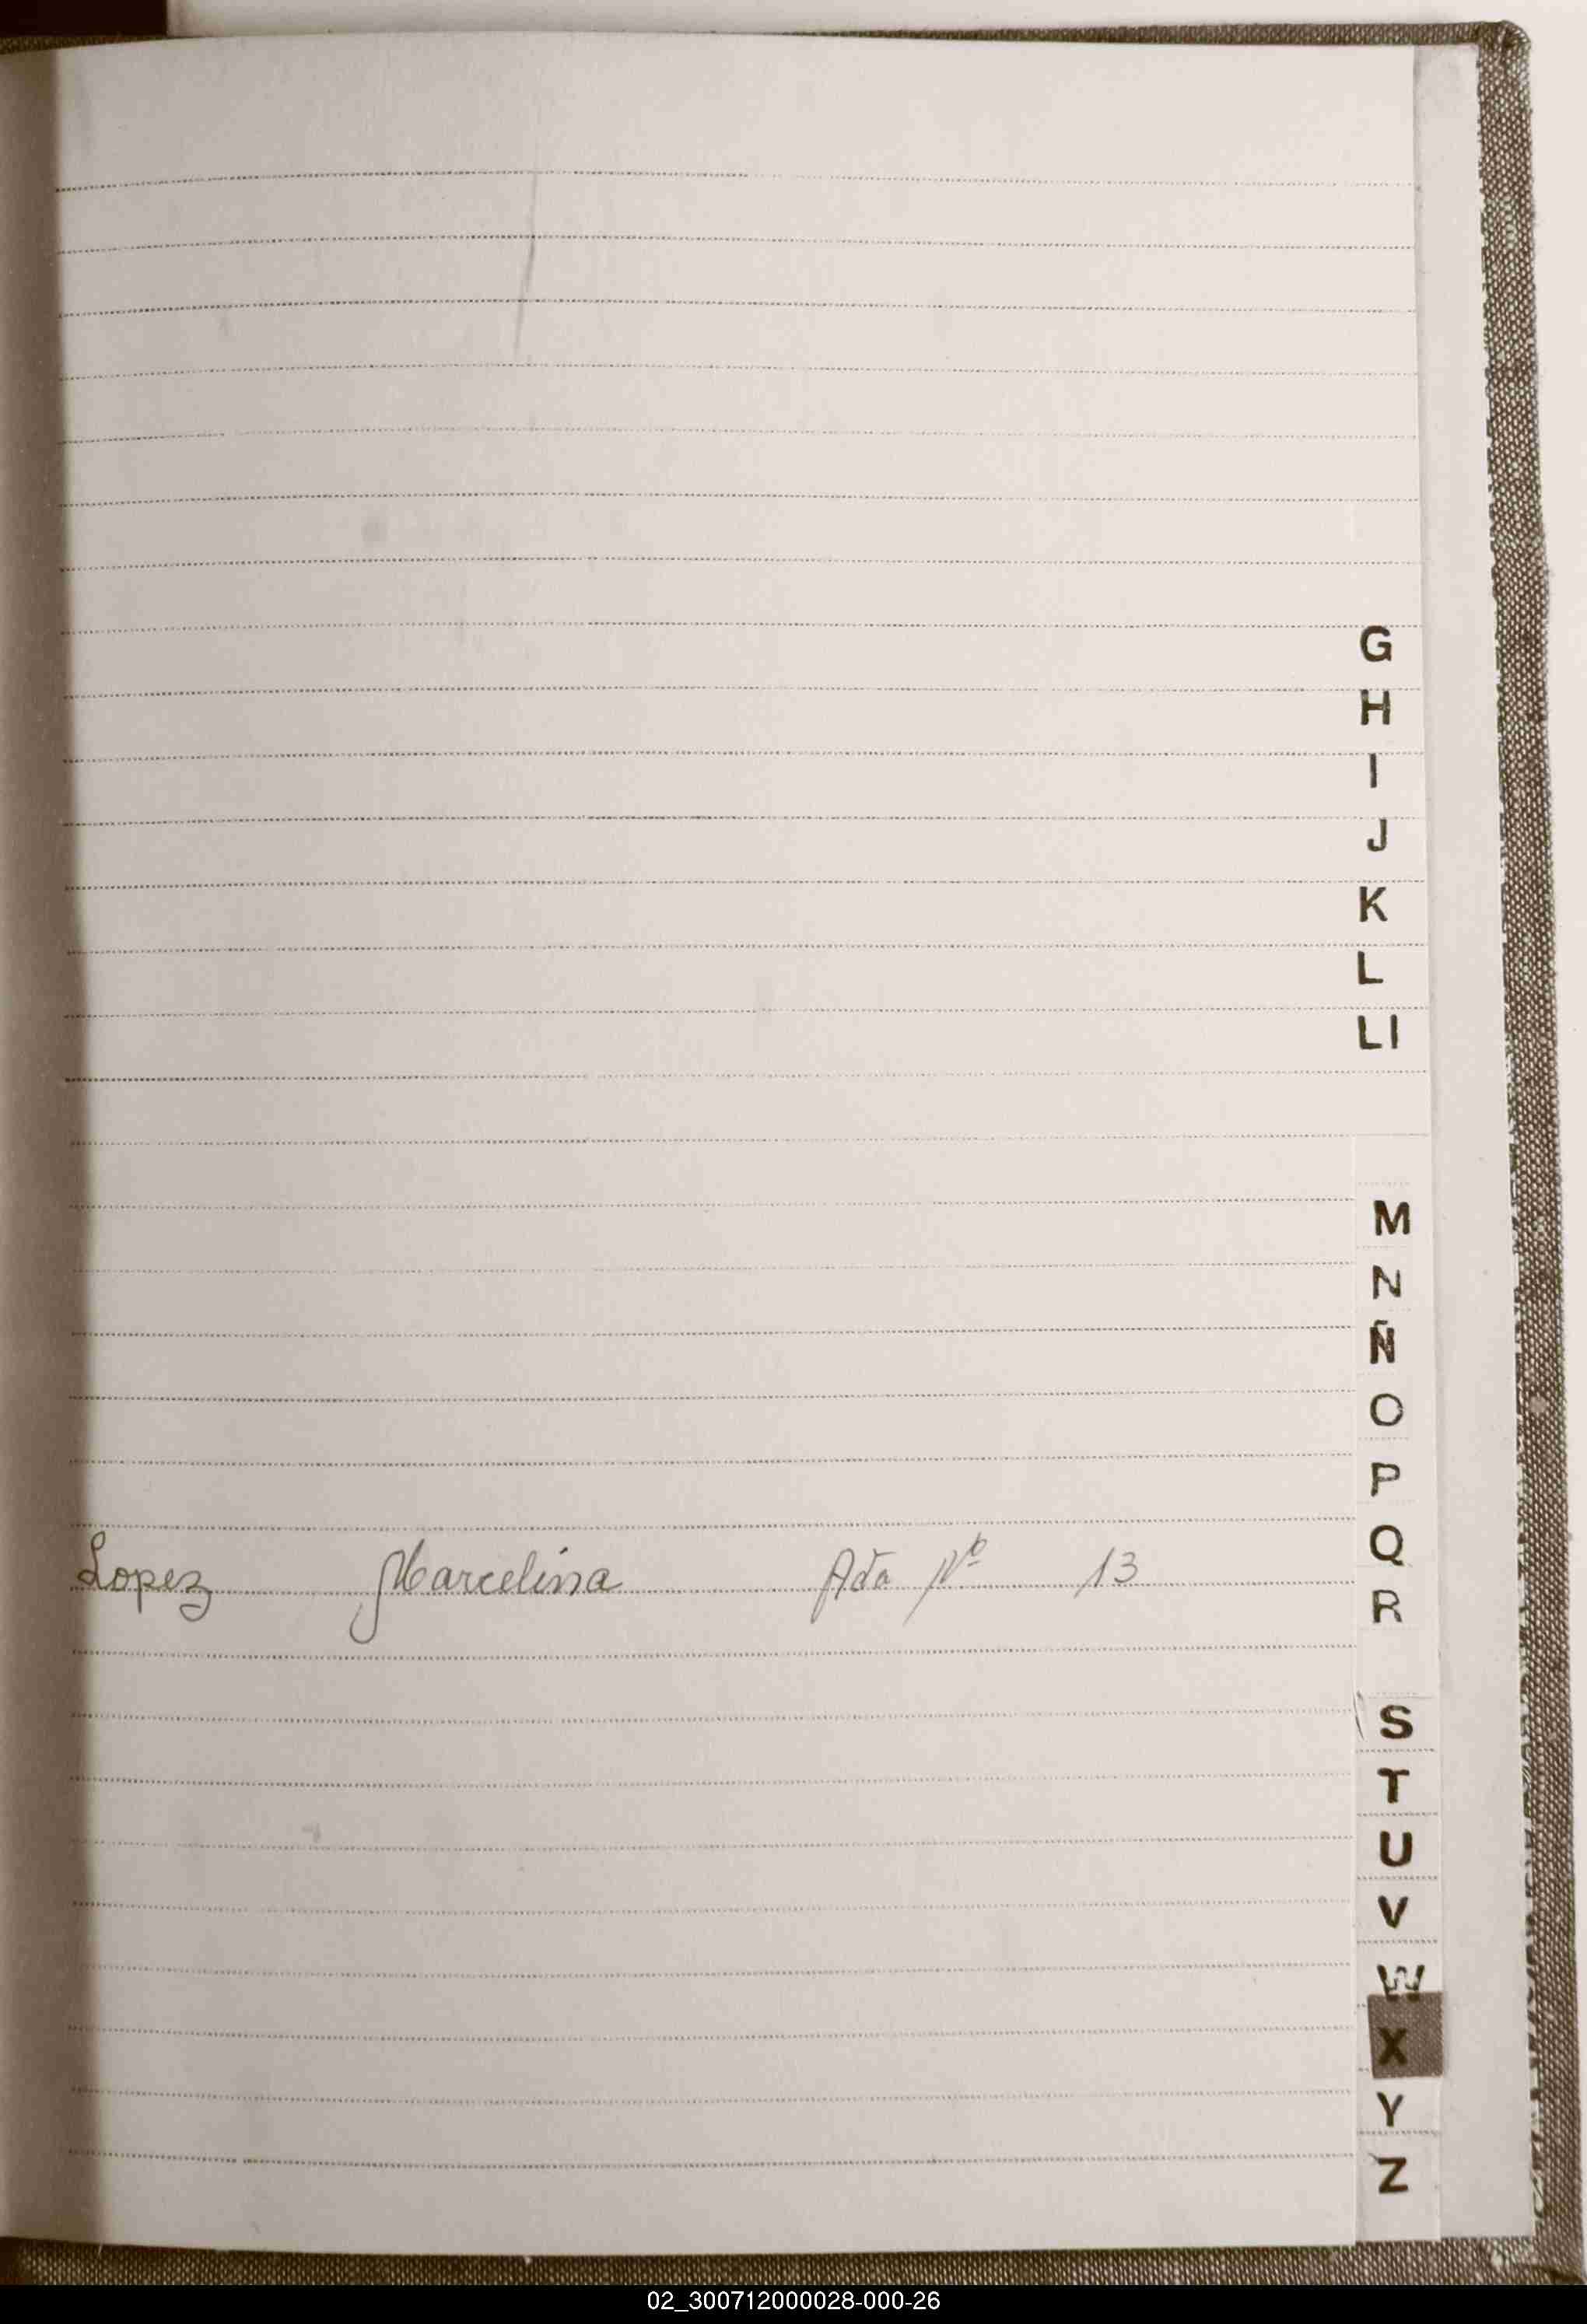 G
H
I
J
K
L
Ll
M
N
Ñ
O
P
Q
Lopez Marcelina Ada Nº 13
R
S
T
U
V
W
X
Y
Z
02_300712000028-000-26